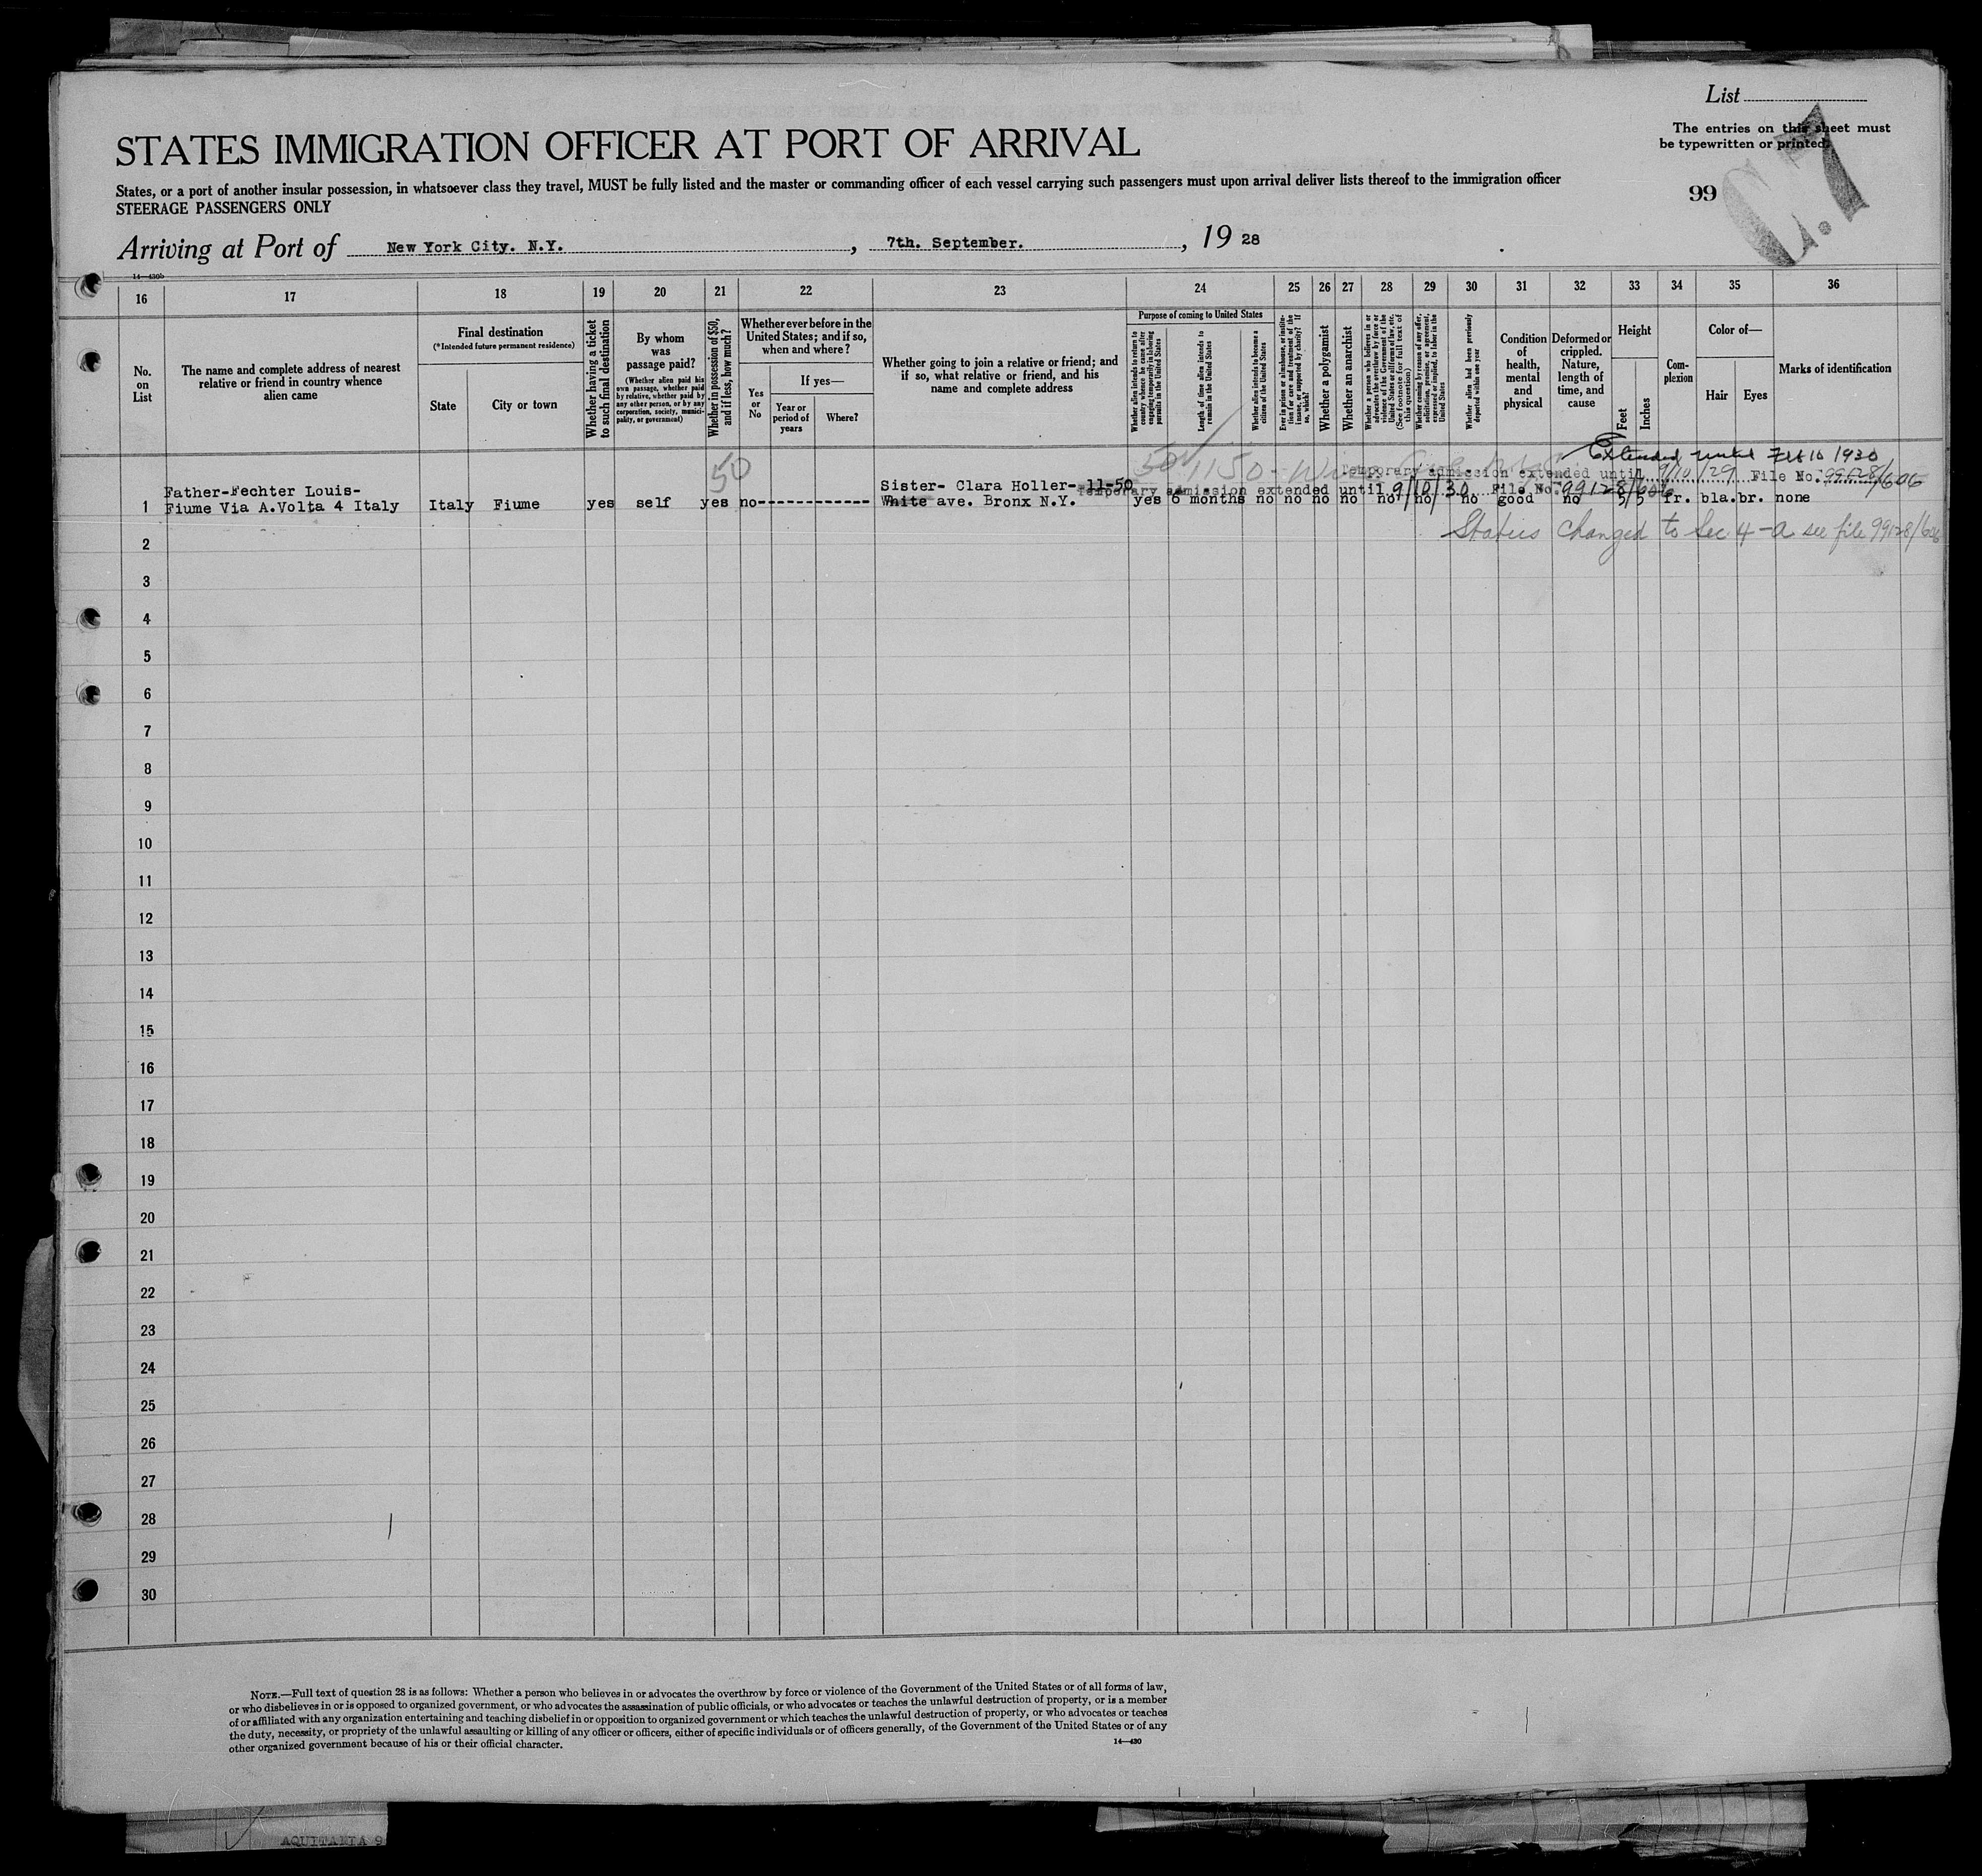 List
The entries on this sheet must
be typewritten or printed.
STATES IMMIGRATION OFFICER AT PORT OF ARRIVAL
States, or a port of another insular possession, in whatsoever class they travel, MUST be fully listed and the master or commanding officer of each vessel carrying such passengers must upon arrival deliver lists thereof to the immigration officer
STEERAGE PASSENGERS ONLY
99
C.7
Arriving at Port of New York City. N.Y. , 7th. September. , 19 28
14—430b
16 17 18 19 20 21 22 23 24 25 26 27 28 29 30 31 32 33 34 35 36
No. on List
The name and complete address of nearest relative or friend in country whence alien came
Final destination
(*Intended future permanent residence)
State
City or town
Whether having a ticket to such final destination
By whom was passage paid?
(Whether alien paid his own passage, whether paid by relative, whether paid by any other person, or by any corporation, society, municipality, or government)
Whether in possession of $50, and if less, how much?
Whether ever before in the United States; and if so, when and where?
Yes or No
If yes—
Year or period of years
Where?
Whether going to join a relative or friend; and if so, what relative or friend, and his name and complete address
Purpose of coming to United States
Whether alien intends to return to country whence he came after engaging temporarily in laboring pursuits in the United States
Length of time alien intends to remain in the United States
Whether alien intends to become a citizen of the United States
Ever in prison or almshouse, or institution for care and treatment of the insane, or supported by charity? If so, which?
Whether a polygamist
Whether an anarchist
Whether a person who believes in or advocates the overthrow by force or violence of the Government of the United States or all forms of law, etc. (See footnote for full text of this question)
Whether coming by reason of any offer, solicitation, promise, or agreement, expressed or implied, to labor in the United States
Whether alien had been previously deported within one year
Condition of health, mental and physical
Deformed or crippled. Nature, length of time, and cause
Height
Feet
Inches
Complexion
Color of—
Hair
Eyes
Marks of identification
Extended until Feb 10 1930
50
Temporary admission extended until 9/10/29 File No. 99128/606
Temporary admission extended until 9/10/30 File No. 99128/606
1 Father-Fechter Louis- Fiume Via A.Volta 4 Italy Italy Fiume yes self yes no------------ Sister- Clara Holler- 11-50 White ave. Bronx N.Y. yes 6 months no no no no no no no good no 5/5 fr. bla. br. none
Status changed to Sec 4-a see file 99128/606
2
3
4
5
6
7
8
9
10
11
12
13
14
15
16
17
18
19
20
21
22
23
24
25
26
27
28
29
30
NOTE.—Full text of question 28 is as follows: Whether a person who believes in or advocates the overthrow by force or violence of the Government of the United States or of all forms of law,
or who disbelieves in or is opposed to organized government, or who advocates the assassination of public officials, or who advocates or teaches the unlawful destruction of property, or is a member
of or affiliated with any organization entertaining and teaching disbelief in or opposition to organized government or which teaches the unlawful destruction of property, or who advocates or teaches
the duty, necessity, or propriety of the unlawful assaulting or killing of any officer or officers, either of specific individuals or of officers generally, of the Government of the United States or of any
other organized government because of his or their official character.
14—430
AQUITANIA 9